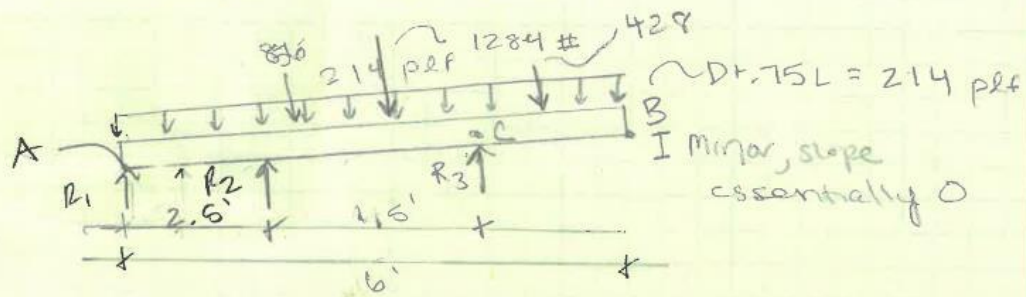 856
214 plf
1284 #
428
D+.75L = 214 plf
A
B
C
I Minor, slope
essentially 0
R1
R2
R3
2.5'
1.5'
6'